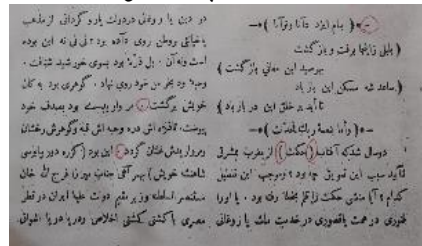 ﴿ بنام ایزد دانا و توانا ﴾
( بلبل زاینجا برفت و باز گشت
بپرسید این معانی باز گشت )
( ساعد شه مسکن این باز باد
تا أبد بر خلق این در باز باد )
﴿ وأما بنعمة ربك فحدّث ﴾
دو سال شد که آفتاب ( حکمت ) از مغرب بمشرق
سبب این تعویق چه بود ؟ و موجب این تعطیل
کدام ؟ آیا منشی حکمت را بخطا رفته بود . یا اورا
فتوری در همت یا قصوری در خدمت ملت یا زوغانی
در دین یا و روغنی در دولت یا رو گردانی از مذهب
یا خیانتی بوطن روی داده بود ؟ نی نی نه این بوده
است ونه آن . بل ذره بود بسوی خورشید شتافت .
بود بحر من خود روی نهاد . گوهری بود به کان
خویش برگشت . مرواریدی بود بصدف خود
پیوست . اش قند و گوهرش رخشان
ومرواریدش غلتان گردد . این بود ( که دور پابوسی
شاهنشه خویش ) بهر آنی جناب میرزا فرج الله خان
مستنصر السلطنه وزیر مقیم دولت علیهٔ ایران در قطر
مصری با کشتی کشتی اخلاص ودریا دریا اشواق